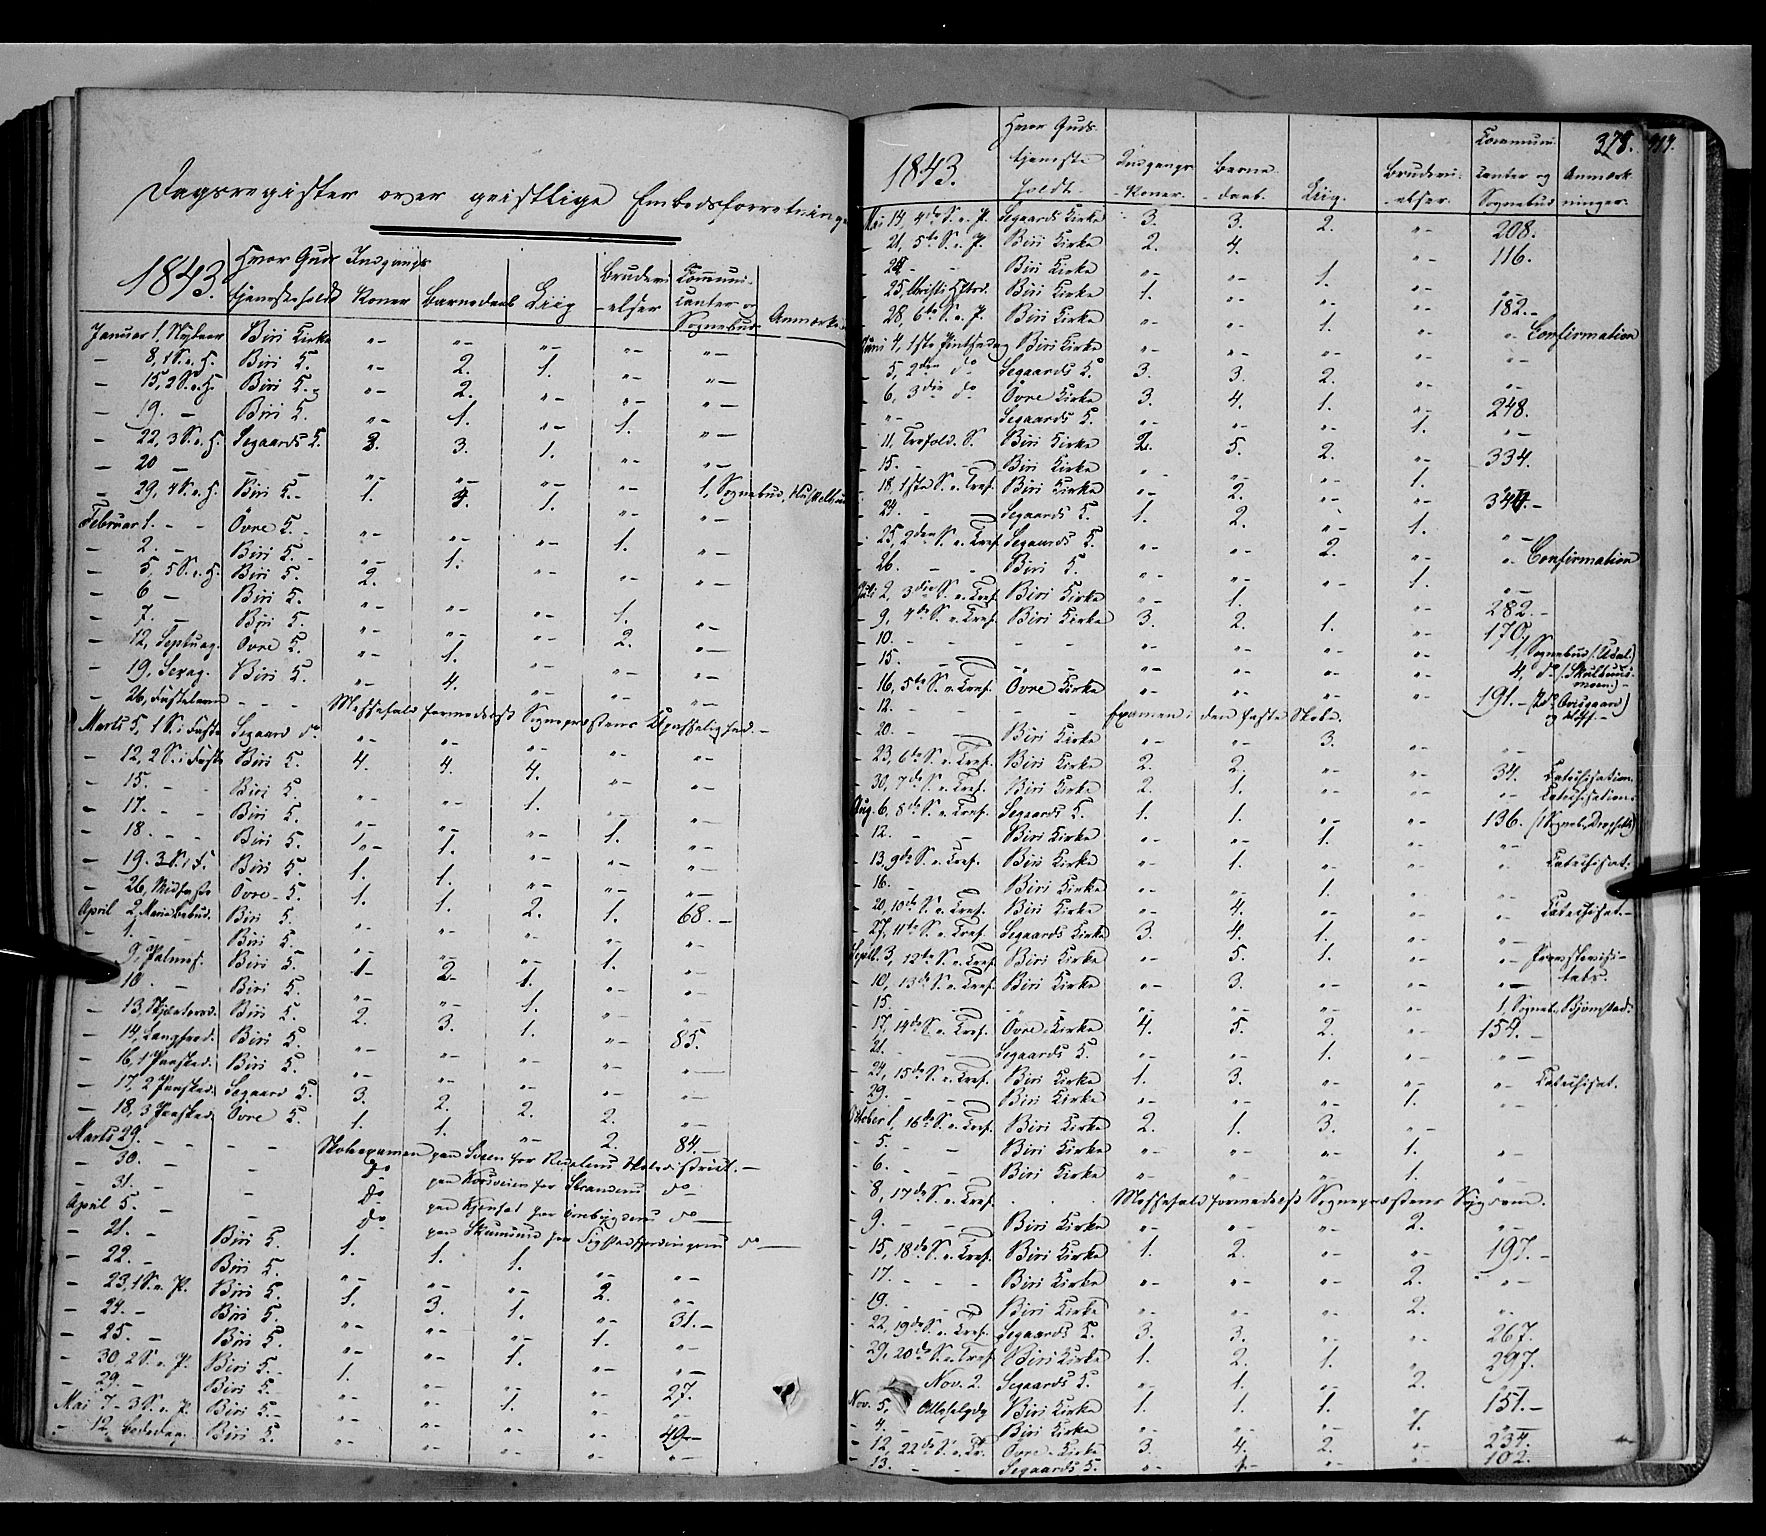 Dagsregister over geistlige Embedsforretninger
1843. Hvor Guds tjeneste holdt Indgangs Koner Barnedaab Liig Brudevi-elser Communi-canter og Sognebud Anmærkn.
Januar 1, Nytaar Biri Kirke "- "- "- "- "-
- 8, 1 S. e. H. Biri K. "- 2. 1. "- "-
- 15, 2 S. e. H. Biri K. "- 2. "- "- "-
- 19. - Biri K. "- 1. "- 1. "-
- 22, 3 S. e. H. Segaards K. 3. 3. 1. "- "-
- 20 - - "- "- "- "- 1, Sognebud,
- 29, 4 S. e. H. Biri K. 1. 4. 1. "- "-
Februar 1. - - Övre K. "- "- "- 1. "-
- 2. - Biri K. "- 1. "- "- "-
- 5, 5 S. e. H. Biri K. 2.
- 6 - Biri K. "- "- 1. "-
- 7. - Biri K. "- "- "- 2. "-
- 12, Septuag. Övre K. "- 1. "- "- "-
- 19, Sexag. Biri K. "- 4. "- "- "-
- 26, Fastelavn - - - Messefald formedelst Sognepræstens Upasselighed. -
Marts 5, 1 S. i Faste Segaard do "- "- "- "- "-
- 12, 2 S. i Faste Biri K. 4. 4. 4. "- "-
- 15. - - Biri K. "- "- 1. "- "-
- 17. - - Biri K. "- "- "- 1. "-
- 18. - - Biri K. 1- 1. "- "- "-
- 19. 3 S. i F. Biri K. 1. 1. "- "- "-
- 26, Midfaste Övre K. 1. 1. 2. 1. 68. -
April 2, Mariæ Bebud. Biri K. "- "- "- "- "-
- 1. - - Biri K. "- "- "- 1. "-
9, Palmes. Biri K. 1- 2. 1. "- "-
- 10. - Biri K. "- "- 1. "- "-
- 13, Skjærtorsd. Biri K. 2. 3. 1. "- 85.
- 14, Langfred. Biri K. "- "- "- "- "-
- 16, 1 Paaskd. Biri K. "- "- "- "- "-
- 17, 2 Paaskd. Segaard K. 3. 2. 2. 2. "-
- 18, 3 Paaskd. Övre K. 1. 1. "- 2. 84. -
Marts 29. - - - - Skoleexamen paa Sveen for Skoledistrict. -
- 30. - - - Do paa Korsveien for Strandens do -
- 31. - - Do paa for do -
April 5. - - Do paa for do -
- 21. - Biri K. 1. 1. 1. "- "-
- 22. - Biri K. "- "- "- 2. "-
- 23, 1 S. e. P. Biri K. 1. 3. 1. "- 31. -
- 24. - Biri K. "- "- "- 1. "-
- 25. - Biri K. "- "- 1. "- "-
- 30, 2 S. e. P. Biri K. 1. "- "- "- 27.
- 29. - Biri K. "- "- 1. "- "-
Mai 7 - 3 S. e. P. Biri K. "- "- "- "- 49 -
- 12, Bededag. Biri K. "- "- "- "- "-
378.
1843. Hvor Guds tjeneste holdt. Indgangs-Koner. Barne-daab. Liig. Brudevi-elser. Communi-canter og Sognebud Anmærk-ninger.
Mai 14, 4de S. e. P. Segaards Kirke 3. 3. 2. "- 208.
- 21, 5te S. e. P. Biri Kirke 2. 4. "- "- 116.
- 22 - - Biri Kirke "- "- 1. "- "-
- 25, Christi Hf.d. Biri Kirke 1. "- "- "- 182. -
- 28, 6te S. e. P. Biri Kirke "- "- 1. "- " - Confirmation
Juni 4, 1ste Pintsedag Biri Kirke "- "- "- "- "-
- 5, 2den do Segaards K. 3. 3. 2. "- "-
- 6, 3die do Övre Kirke 3. 4. 1. "- 248.
- "- Segaards K. "- "- "- 1. "-
- 11, Trefold. S. Biri Kirke 2. 5. 2. "- 334.
- 15. - - Biri Kirke "- "- "- 1. "-
- 18, 1ste S. e. Tref. Biri Kirke "- 2. "- "- 344. -
24. - Segaards K. 1. 2. "- 1. "-
- 25, 2den S. e. Tref. Segaards K. "- "- 2. "- " - Confirmation
- 26. - - Biri K. "- "- "- 1. "-
Juli 2, 3die S. e. Tref. Biri Kirke "- 1. "- "- 282. -
- 9, 4de S. e. Tref. Biri Kirke 3. 2. 1. "- 170.
- 10. - - - "- "- "- "- 1, Sognebud (: Udal :)
- 15. - - "- "- "- "- "- 4, do
- 16, 5te S. e. Tref. Övre Kirke "- "- "- "- 191. -
- 12. - - - Examen i den faste Skole.
- 20. - - Biri Kirke "- "- 3. "- "-
- 23, 6te S. e. Tref. Biri Kirke 2. 2. "- "- 34. Catechisation.
- 30, 7de S. e. Tref. Biri Kirke 2. 1. "- "- " - Catechisation.
Aug. 6, 8de S. e. Tref. Segaards K. 1. 1. "- "- 136.
- 12. - - Biri Kirke "- "- 1. "- "-
- 13, 9de S. e. Tref. Biri Kirke "- 1. "- "- " - Catechisat:
- 16. - Biri Kirke "- "- 1. "- "-
- 20, 10de S. e. Tref. Biri Kirke "- 4. "- "- " - Catechisat. -
- 27, 11te S. e. Tref. Segaards Kirke 3. 4. 1. "- "-
Septb. 3, 12te S. e. Tref. Biri Kirke "- 5. 1. "- " - Provstevisi-tats.
10, 13de S. e. Tref. Biri Kirke "- 3. "- "- "-
15. - "- "- "- "- "- 1, Sogneb. Bjørnstad.
- 17, 14de S. e. Tref. Övre Kirke 4. 5. 2. "- 154. -
- 21. - Segaards K. "- "- 1. "- "-
- 24, 15de S. e. Tref. Biri Kirke 1. 3. "- "- " - Catechisat.
- 29. - - Biri Kirke "- "- "- 1. "-
October 1, 16de S. e. Tref. Biri Kirke 2. 1. 3. "- "-
- 5. - Biri Kirke "- "- "- 1. "-
- 6. - Biri Kirke "- "- "- 1. "-
- 8, 17de S. e. Tref. . . . Messefald formedelst Sognepræstens Sygdom.
- 9. - - Biri Kirke "- "- "- 2. "-
- 15, 18de S. e. Tref. Biri Kirke 1. 2. "- "- 197. -
- 17. - - - Biri Kirke "- "- "- 2. "-
- 19. - - Biri Kirke "- "- "- 2. "-
- 22, 19de S. e. Tref. Segaards K. 3. 3. "- "- 267.
- 29, 20de S. e. Tref. Biri Kirke 1. 2. 1. "- 297.
Nov. 2. Segaards K. "- 1. "- 2. "-
Nov. 5. Allehelgdg Biri Kirke 1. 1. 1. "- 151. -
- 4. - Biri Kirke "- "- "- 1. "-
- 12, 22de S. e. Tr. Övre Kirke 3. 4. 2. "- 234.
- 13. - - Segaards K. "- 1- "- "- 102.